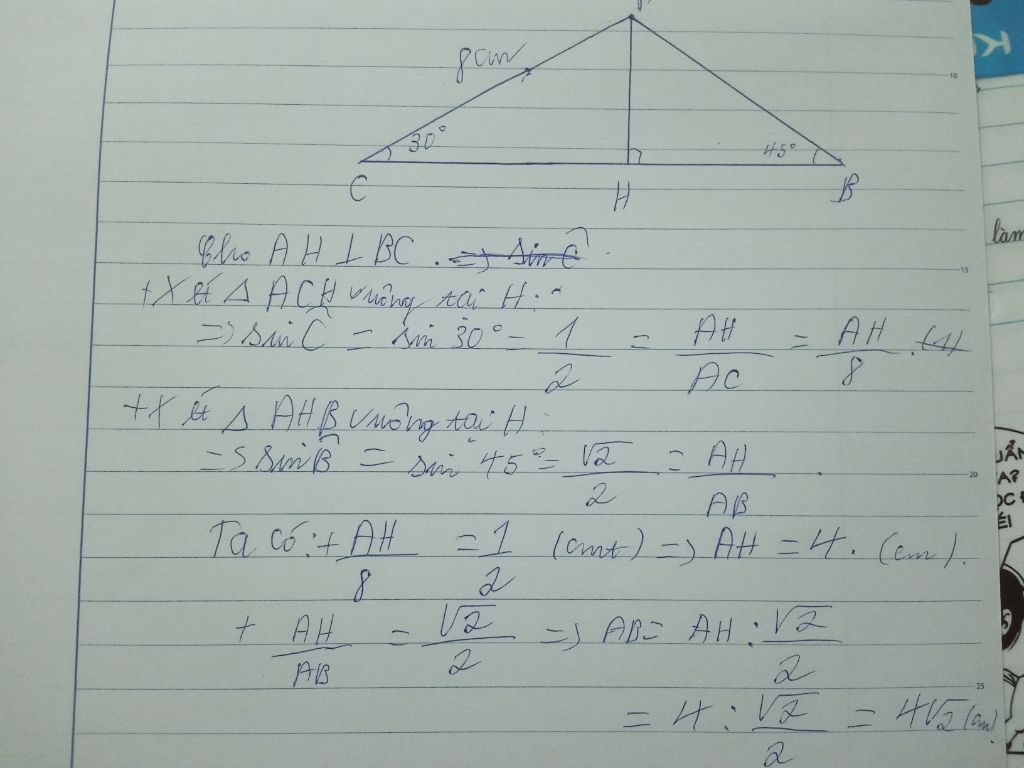 8cm
30°
45°
C
H
B
Cho AH ⊥ BC. => sin Ĉ
+ Xét Δ ACH vuông tại H:
=> sin Ĉ = sin 30° = 1/2 = AH/AC = AH/8 . (1)
+ Xét Δ AHB vuông tại H:
=> sin B̂ = sin 45° = √2/2 = AH/AB .
Ta có: + AH/8 = 1/2 (cmt) => AH = 4. (cm).
+ AH/AB = √2/2 => AB = AH : √2/2
= 4 : √2/2 = 4√2 (cm).
10
15
20
25
làm